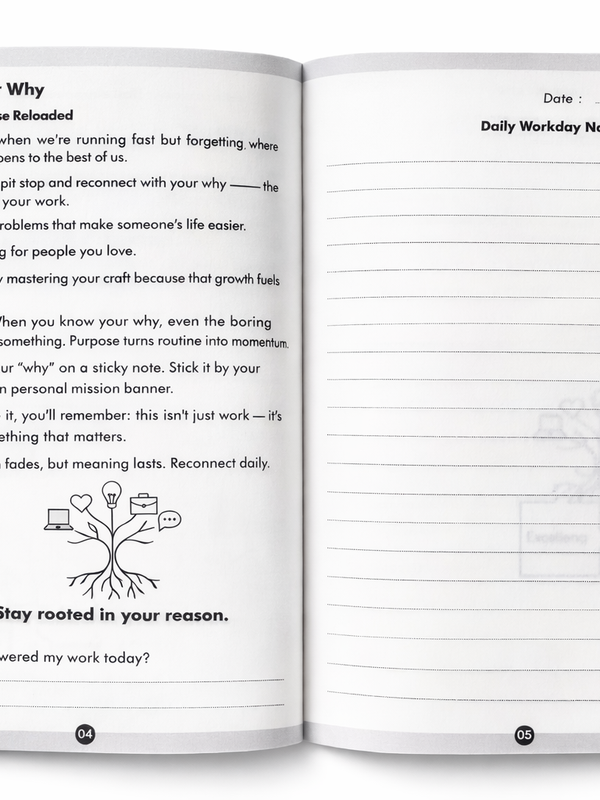 Why
se Reloaded
when we're running fast but forgetting where
pens to the best of us.
pit stop and reconnect with your why — the
your work.
roblems that make someone's life easier.
g for people you love.
y mastering your craft because that growth fuels
When you know your why, even the boring
something. Purpose turns routine into momentum.
ur “why” on a sticky note. Stick it by your
n personal mission banner.
it, you'll remember: this isn't just work — it's
ething that matters.
fades, but meaning lasts. Reconnect daily.
Stay rooted in your reason.
wered my work today?
04
Date :
Daily Workday No
05